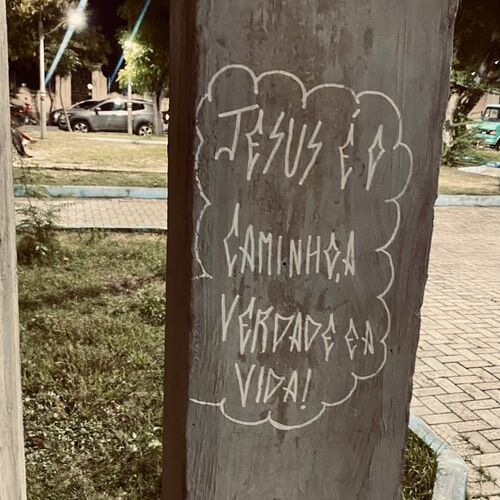 JESUS É O
CAMINHO, A
VERDADE E A
VIDA!